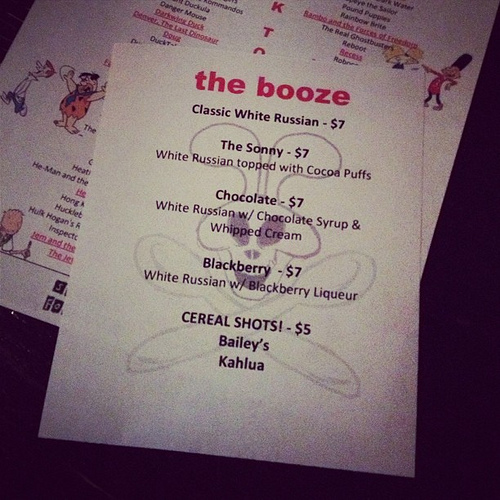 Duckula
Danger Mouse
Darkwing Duck
Denver, The Last Dinosaur
Doug
Kommandos
K
T
O
Dark Water
Popeye the Sailor
Pound Puppies
Rainbow Brite
Rambo and the Forces of Freedom
The Real Ghostbusters
Reboot
Recess
the booze
Classic White Russian - $7
The Sonny - $7
White Russian topped with Cocoa Puffs
Chocolate - $7
White Russian w/ Chocolate Syrup &
Whipped Cream
Blackberry - $7
White Russian w/ Blackberry Liqueur
CEREAL SHOTS! - $5
Bailey's
Kahlua
He-Man and the
Hulk Hogan's
Jem and the